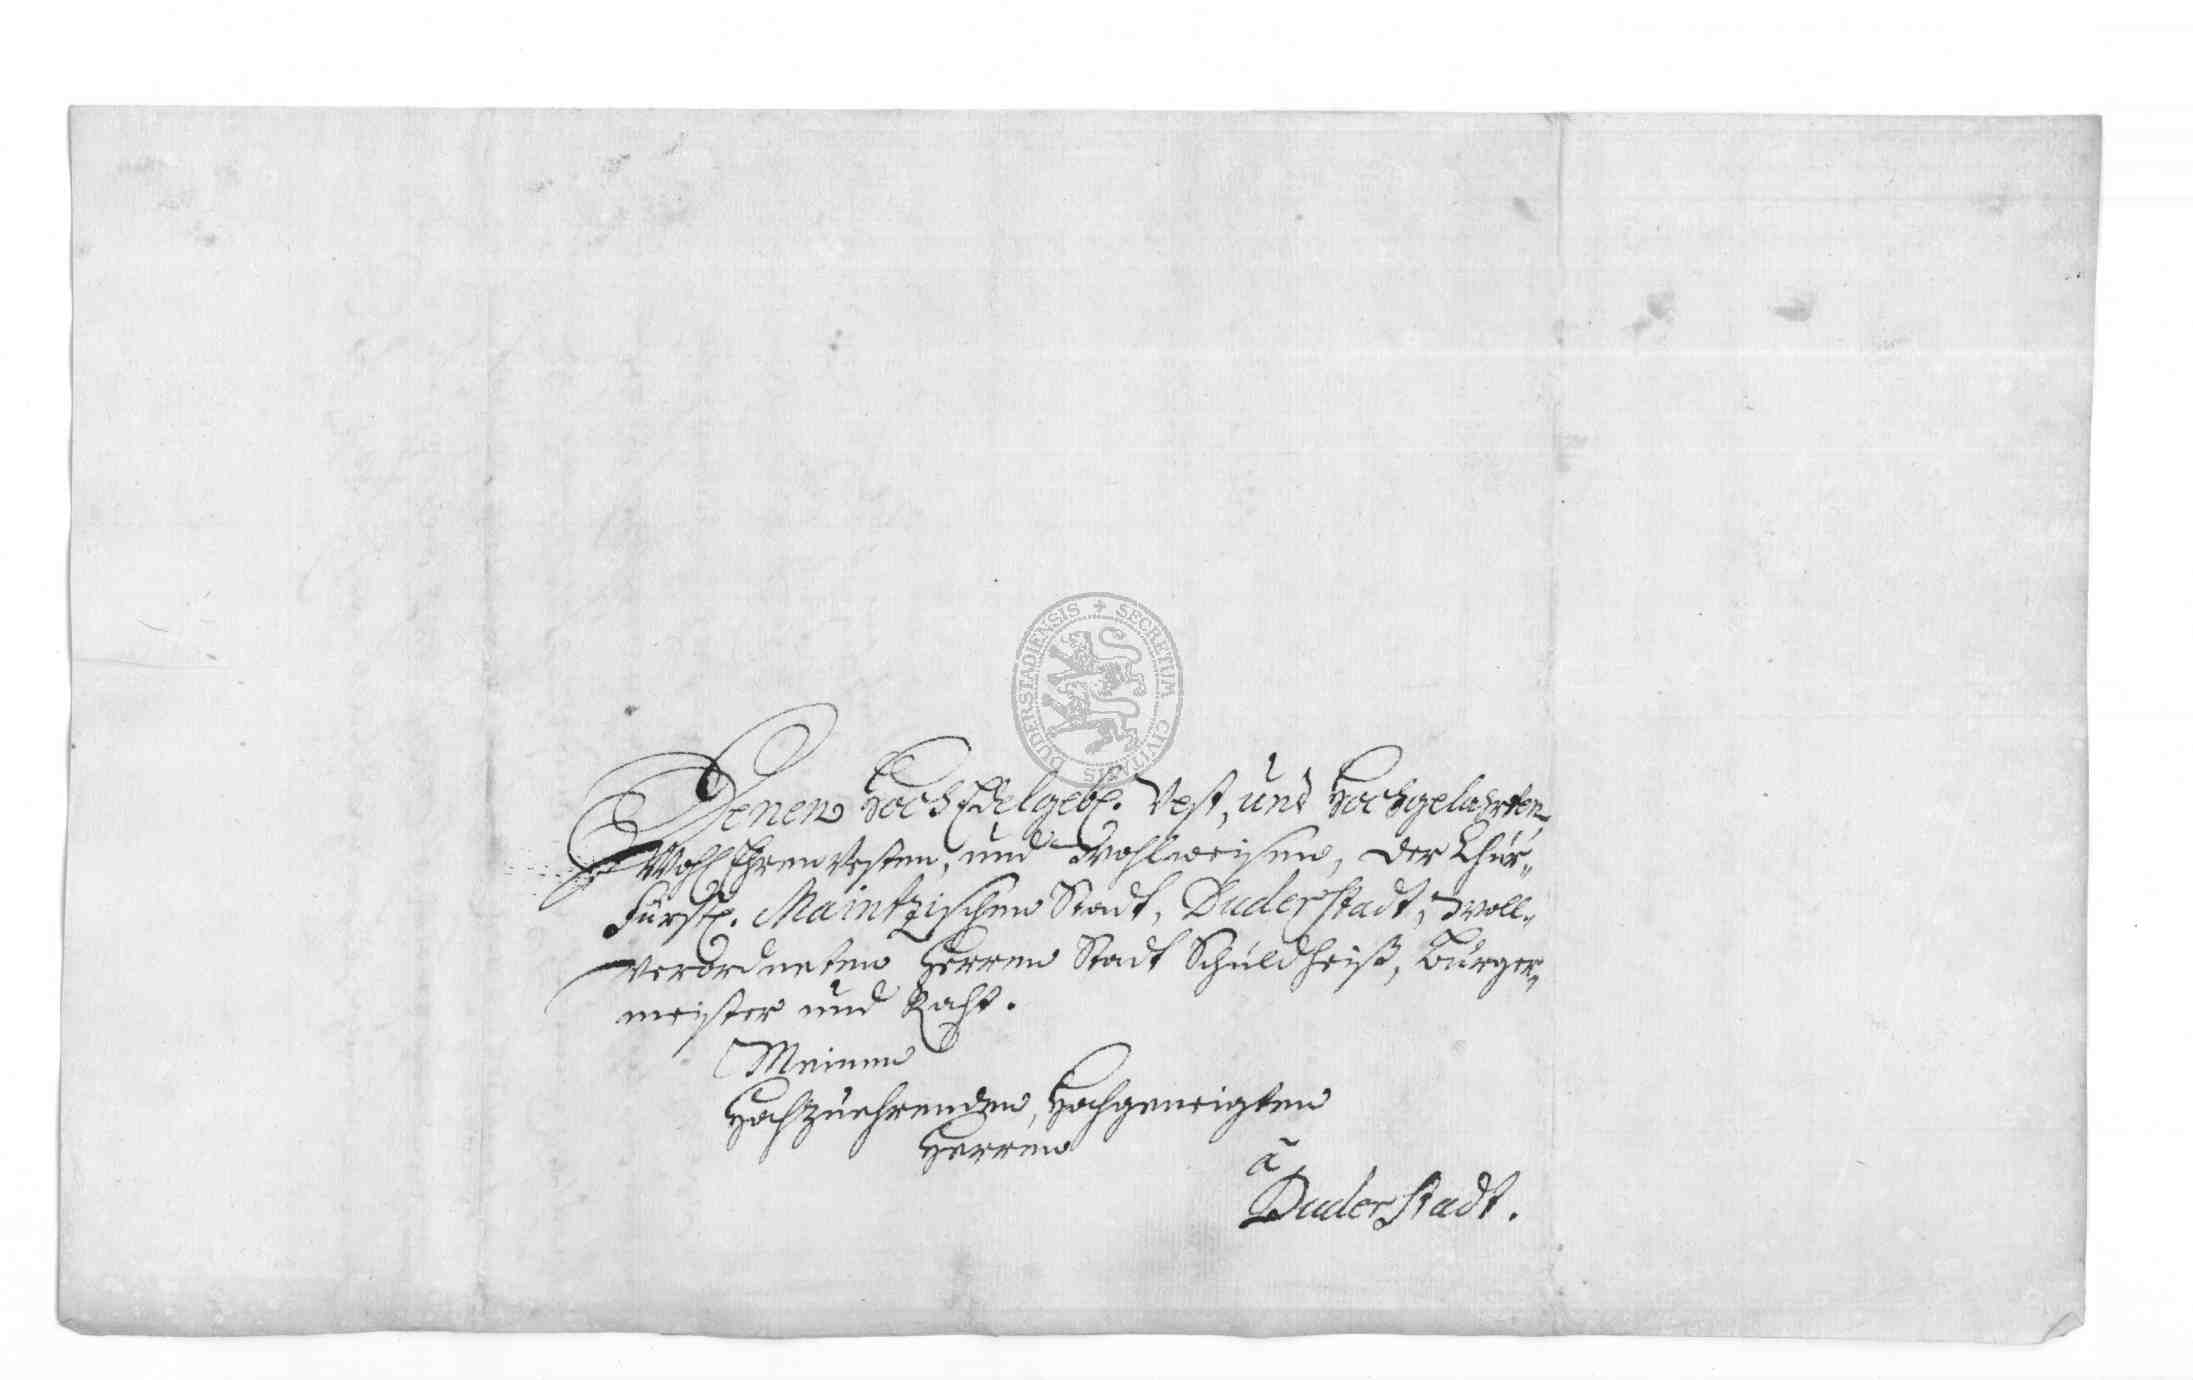 SECRETUM CIVITATIS DUDERSTADIENSIS
Denen HochEdelgebl. Vest, und Hochgelahrten,
WohlEhrenVesten, und Wohlweisen, der Chür„
Fürstl. Maintzischen Stadt, Duderstadt, Woll„
verordneten Herren Stadt Schüldheiß, Bürger„
meister und Raht.
Meinen
Hochzuehrenden, Hochgeneigten
Herren
à
Duderstadt.